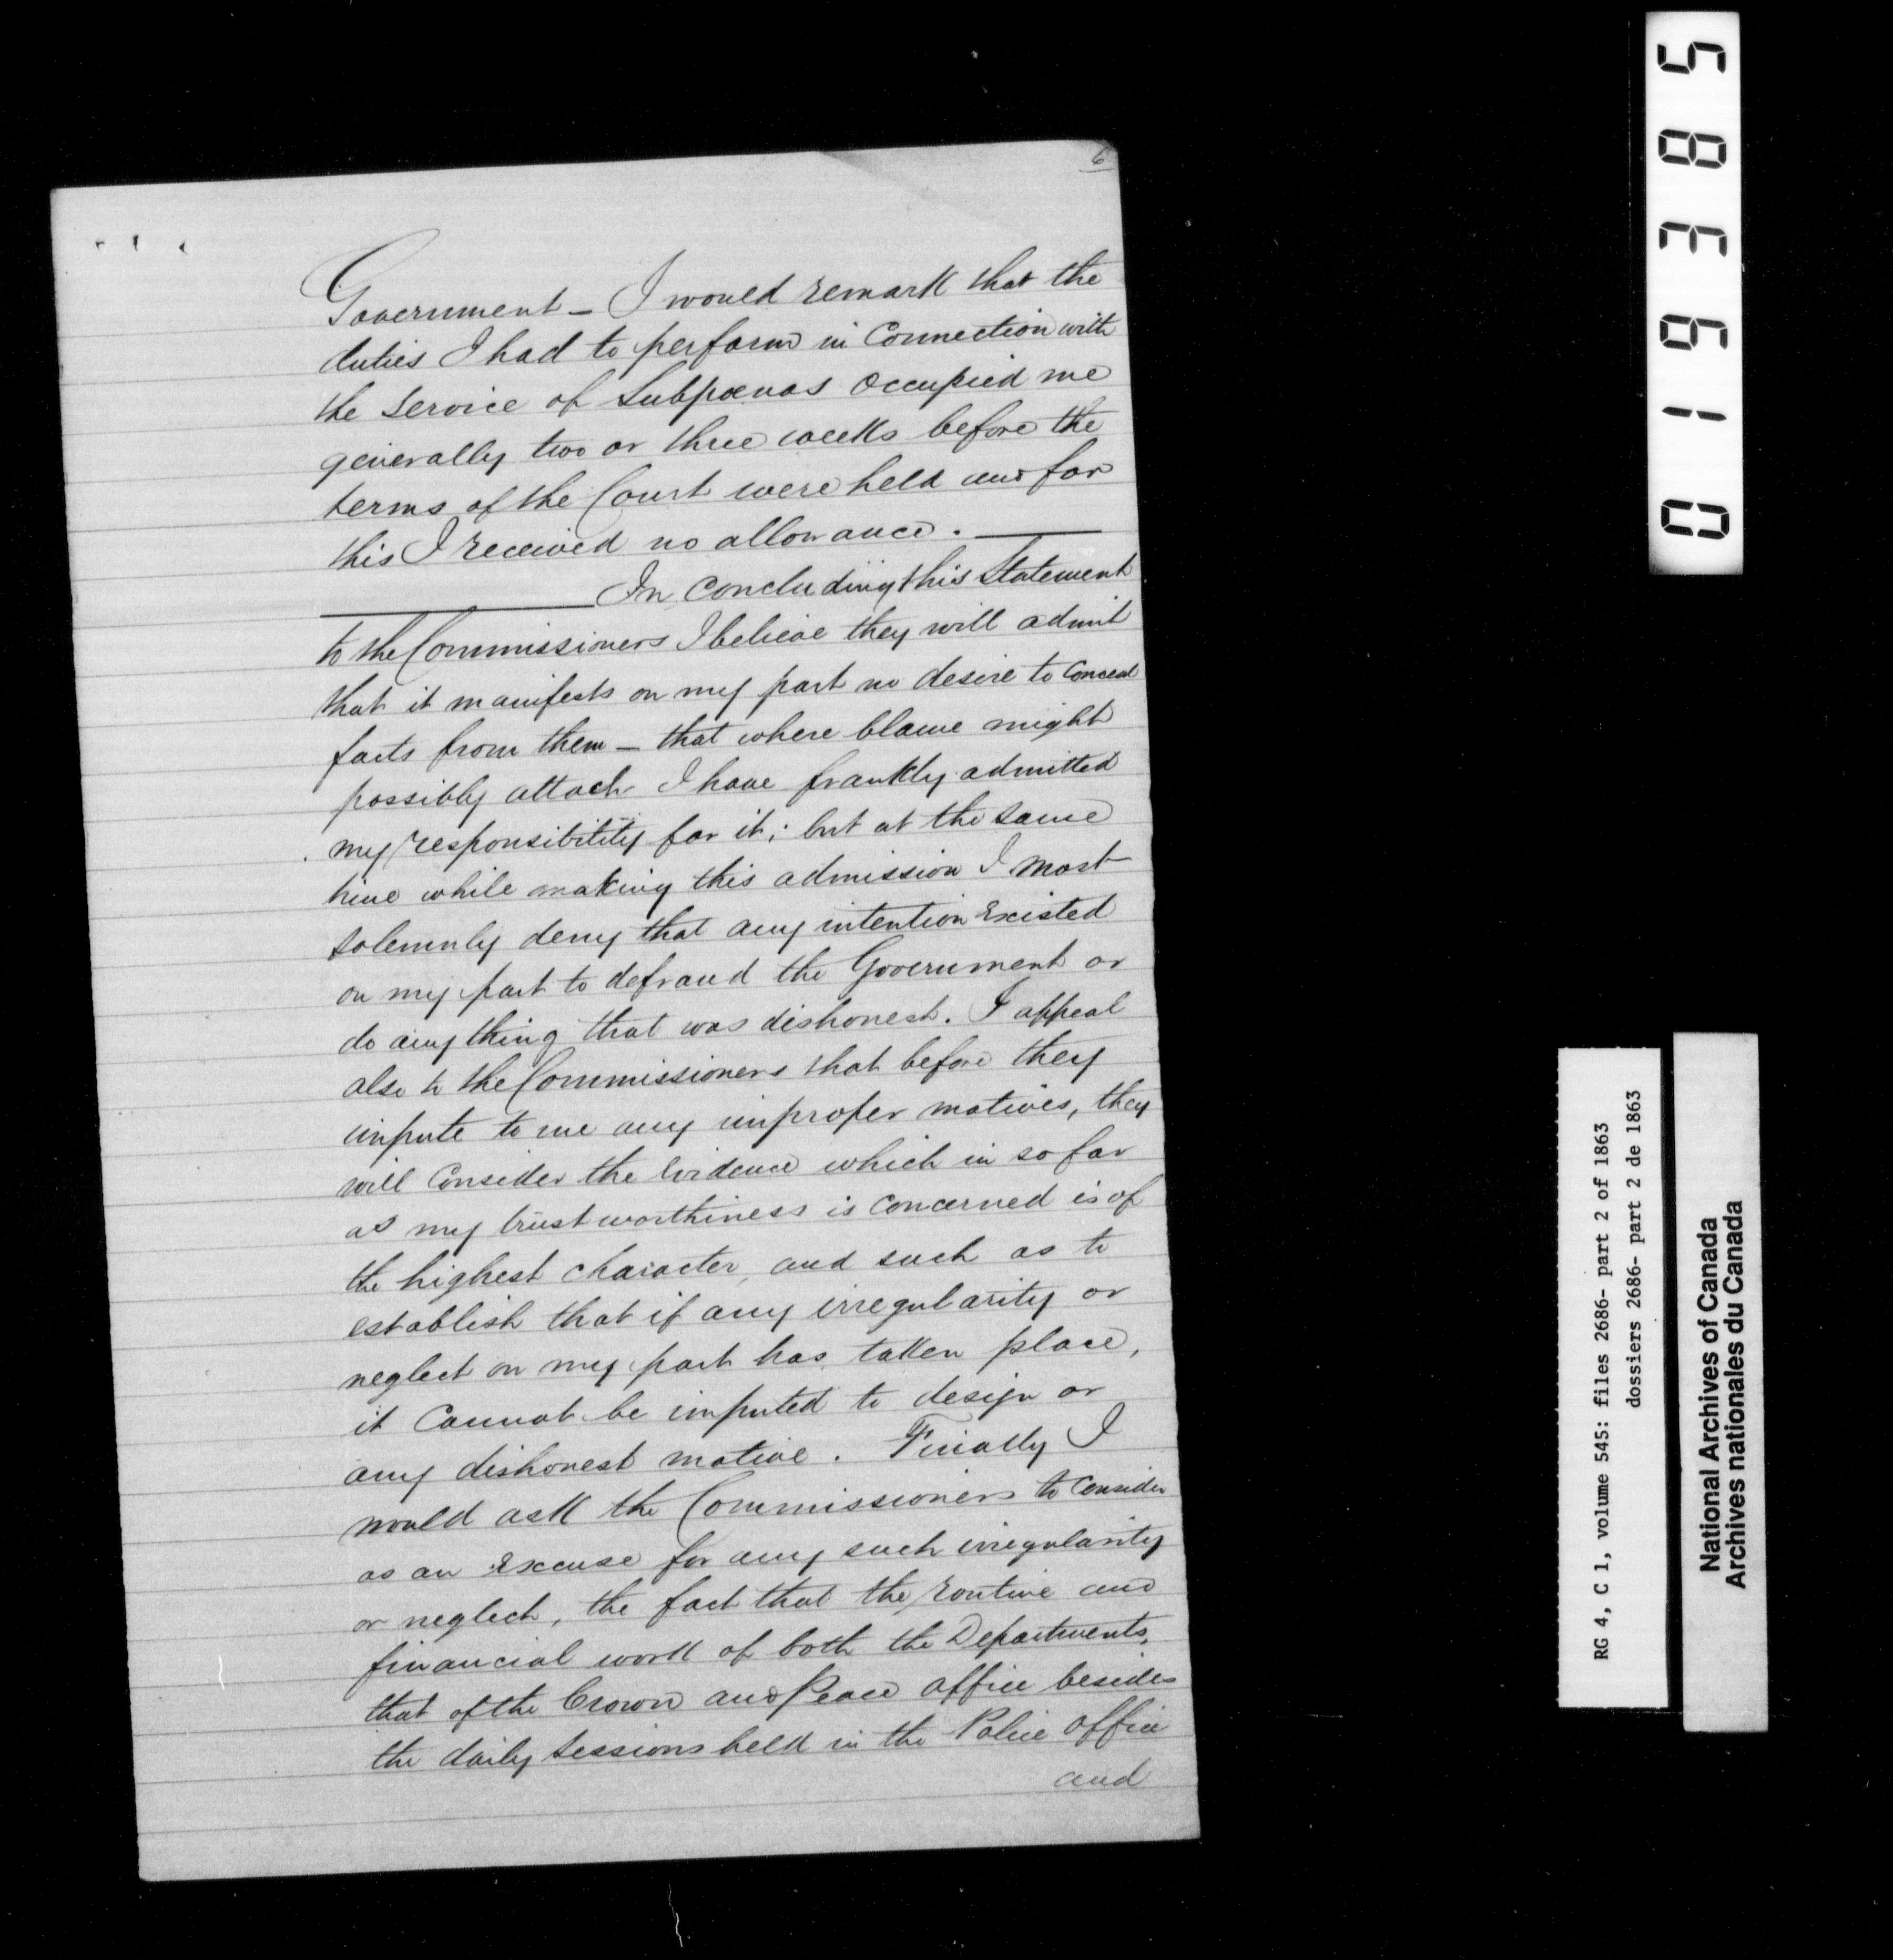 6
Government – I would remark that the
duties I had to perform in Connection with
the Service of Subpœnas occupied me
generally two or three weeks before the
terms of the Court were held and for
this I received no allowance.
In concluding this Statement
to the Commissioners I believe they will admit
that it manifests on my part no desire to Conceal
facts from them – that where blame might
possibly attach I have frankly admitted
my responsibility for it; but at the same
time while making this admission I most
solemnly deny that any intention existed
on my part to defraud the Government or
do anything that was dishonest. I appeal
also to the Commissioners that before they
impute to me any improper motives, they
will Consider the Evidence which in so far
as my trustworthiness is concerned is of
the highest character, and such as to
establish that if any irregularity or
neglect on my part has taken place,
it Cannot be imputed to design or
any dishonest motive. Finally I
would ask the Commissioners to Consider
as an excuse for any such irregularity
or neglect, the fact that the routine and
financial work of both the Departments,
that of the Crown and Peace office besides
the daily Sessions held in the Police office
and
019385
RG 4, C 1, volume 545: files 2686- part 2 of 1863
dossiers 2686- part 2 de 1863
National Archives of Canada
Archives nationales du Canada